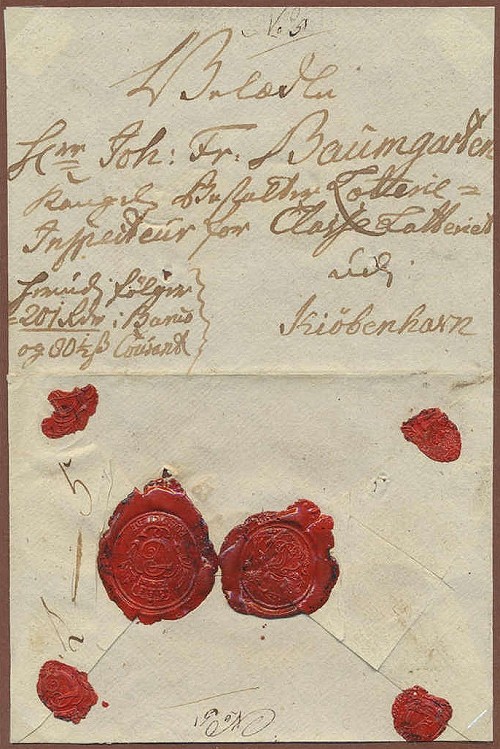 No 5
Velædle
Hrr Joh: Fr: Baumgarten
Kongel Bestalter Lotterie=
Inspecteur for Classe Lotteriet
udi
Kiöbenhavn
hvorudi følger
=201 Rdr: i Banco
og 80½ ß Courant
5